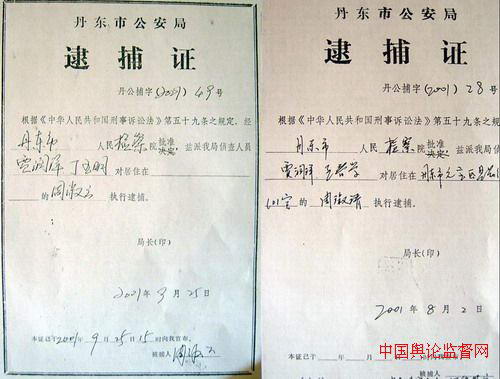 丹东市公安局
逮捕证
丹公捕字(2001)49号
根据《中华人民共和国刑事诉讼法》第五十九条之规定,经
丹东市 人民 检察 院批准决定 兹派我局侦查人员
贾润岸 丁 明 对居住在
的 周淑云 执行逮捕。
局长(印)
2001年9月25日
本证已于2001年9月25日15时向我宣布。
被捕人 周淑云
丹东市公安局
逮捕证
丹公捕字(2001)28号
根据《中华人民共和国刑事诉讼法》第五十九条之规定,经
丹东市 人民 检察 院批准决定 兹派我局侦查
贾润 对居住在 丹东市元宝区
601室 的 周淑清 执行逮捕。
局长(印)
2001年8月2日
本证已于 年 月 日 时向我宣布。
被捕人
中国舆论监督网